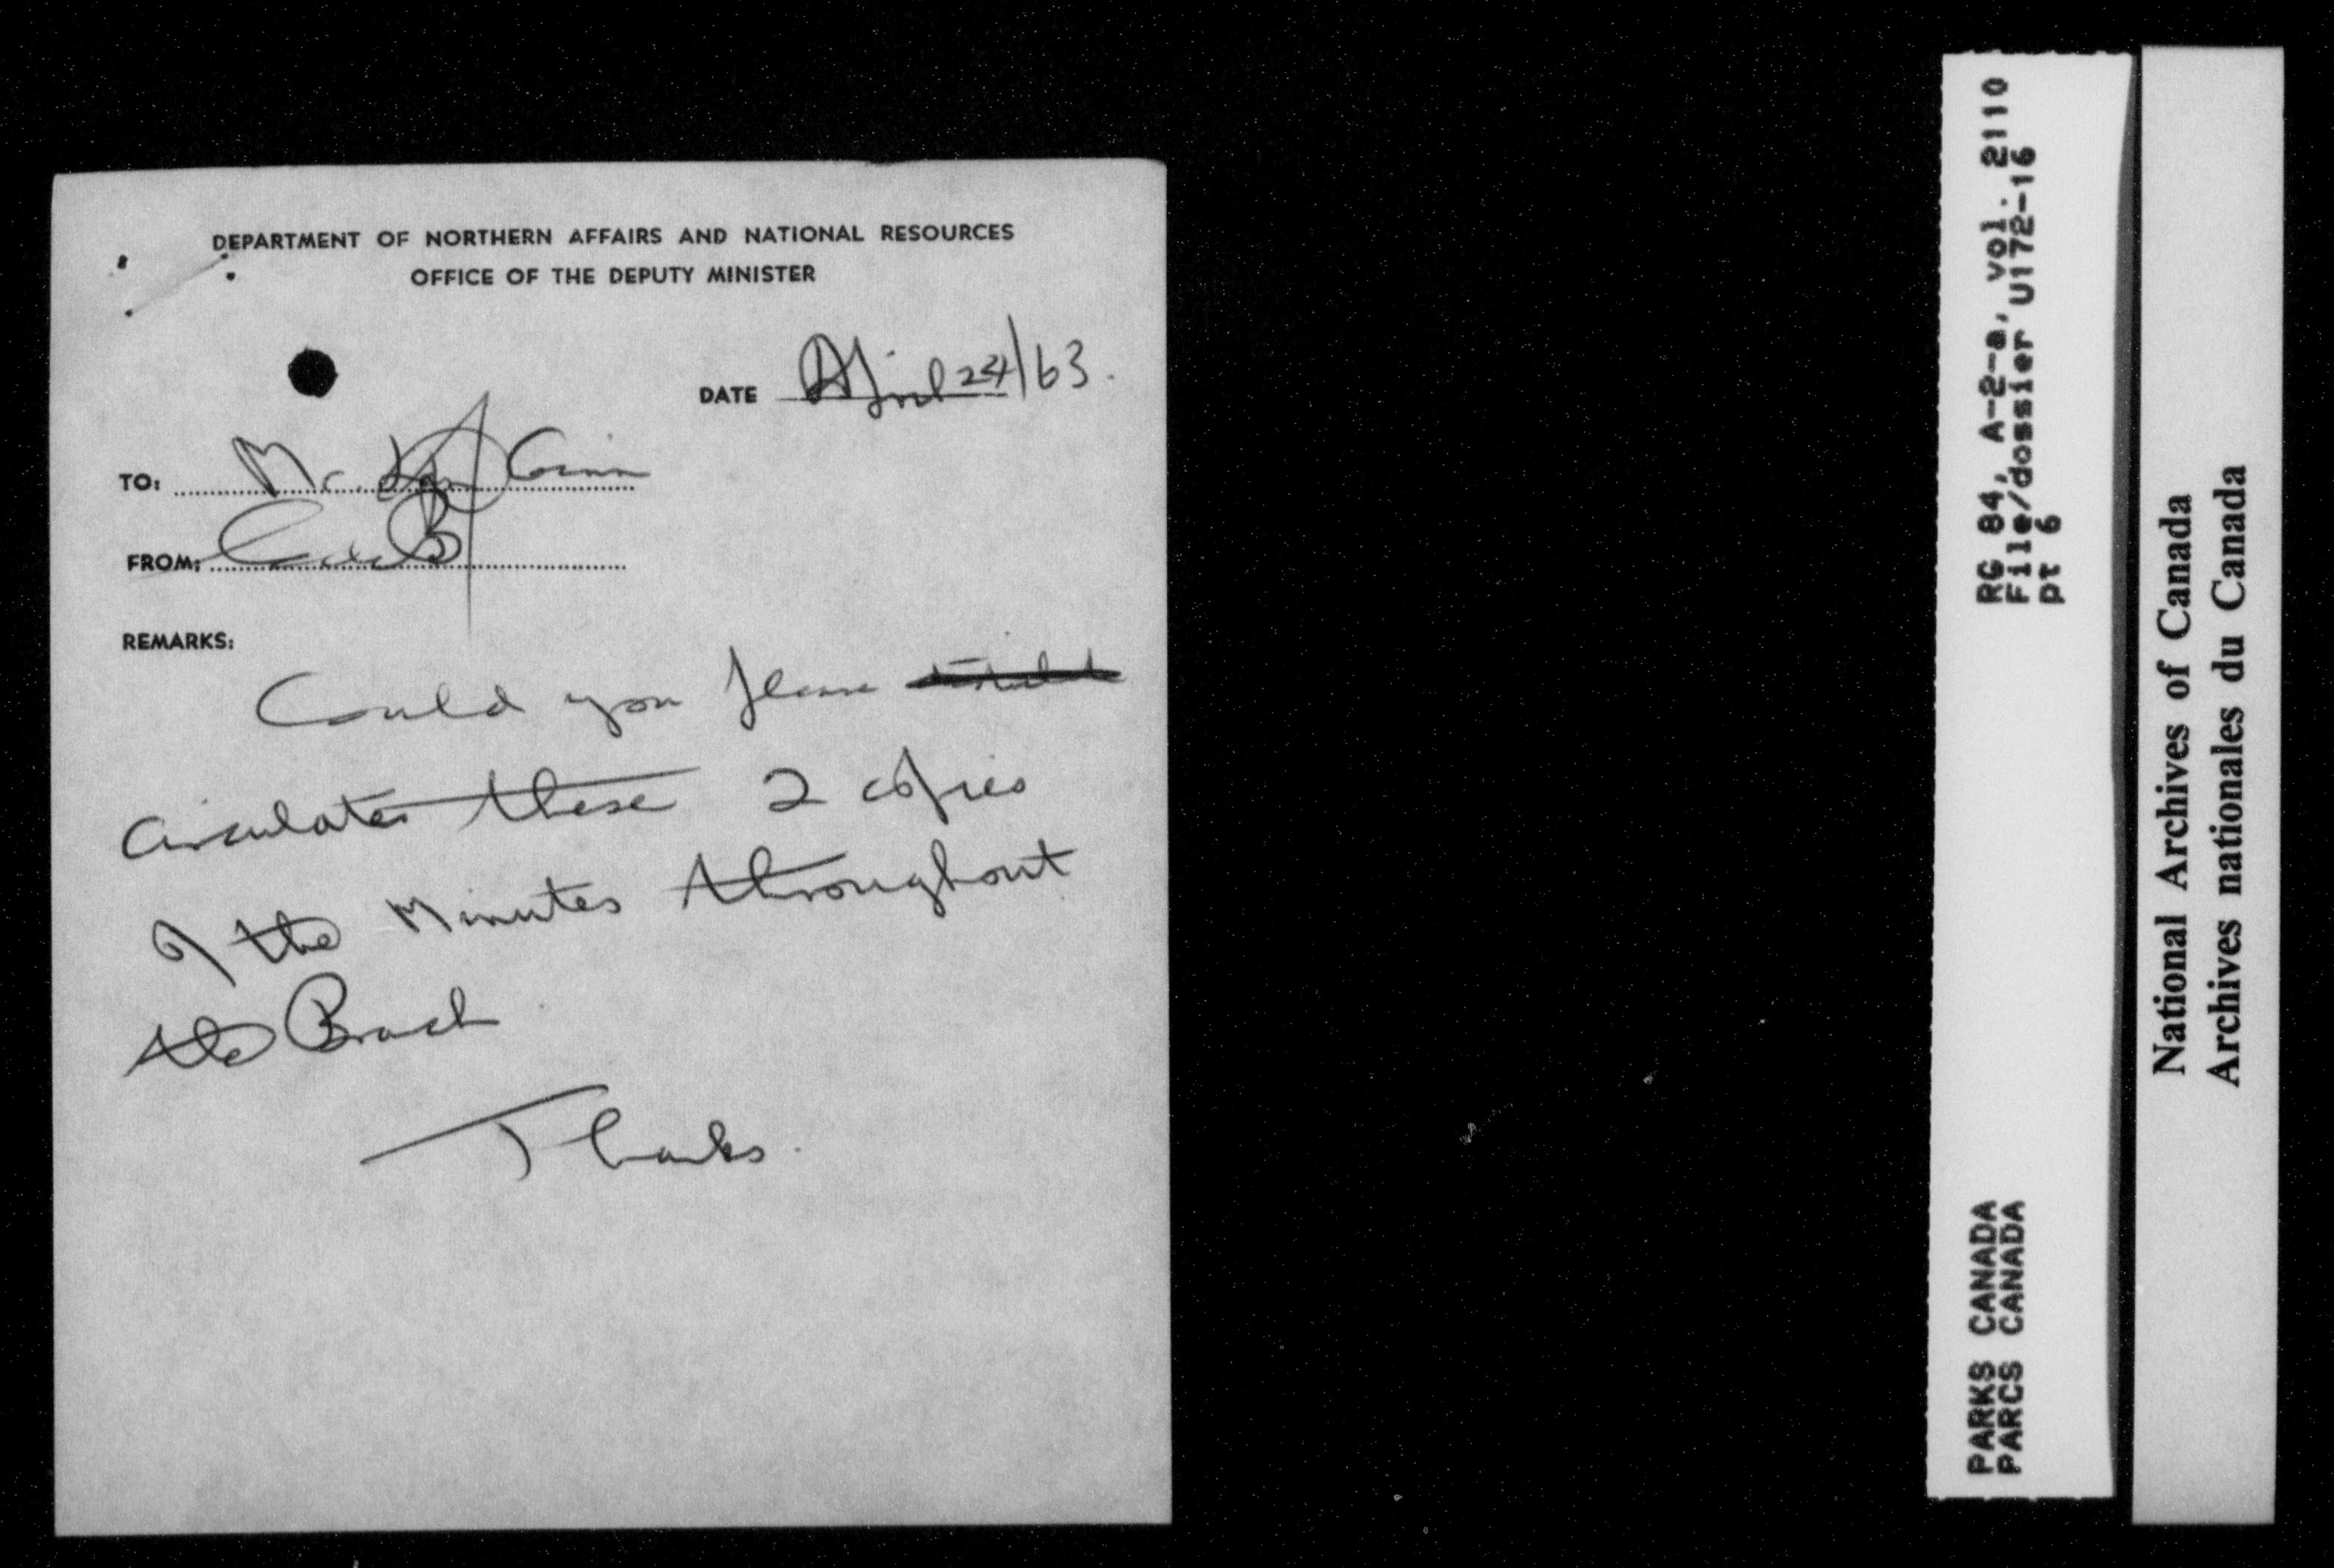 DEPARTMENT OF NORTHERN AFFAIRS AND NATIONAL RESOURCES
OFFICE OF THE DEPUTY MINISTER
DATE April 24/63.
TO: Mr.
FROM:
REMARKS:
Could you please
circulate these 2 copies
of the Minutes throughout
the Branch
Thanks.
RG 84, A-2-a, vol. 2110
File/dossier U172-16
pt 6
PARKS CANADA
PARCS CANADA
National Archives of Canada
Archives nationales du Canada